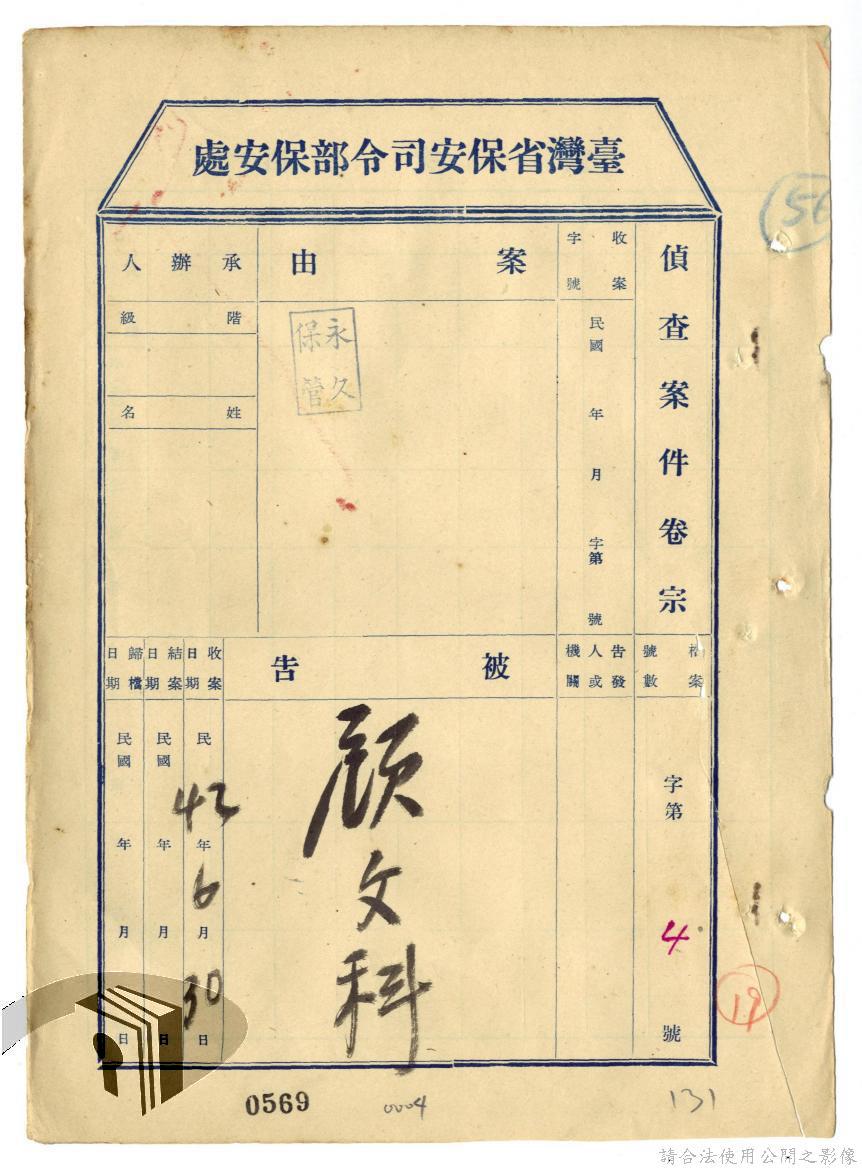 臺灣省保安司令部保安處
56
偵查案件卷宗
收案字號
民國 年 月 字第 號
案由
永久保管
承辦人
階級
姓名
檔案號數
字第 4 號
告發人或機關
被告
顧文科
收案日期
民 42 年 6 月 30 日
結案日期
民國 年 月 日
歸檔日期
民國 年 月 日
19
0569
0004
131
請合法使用公開之影像